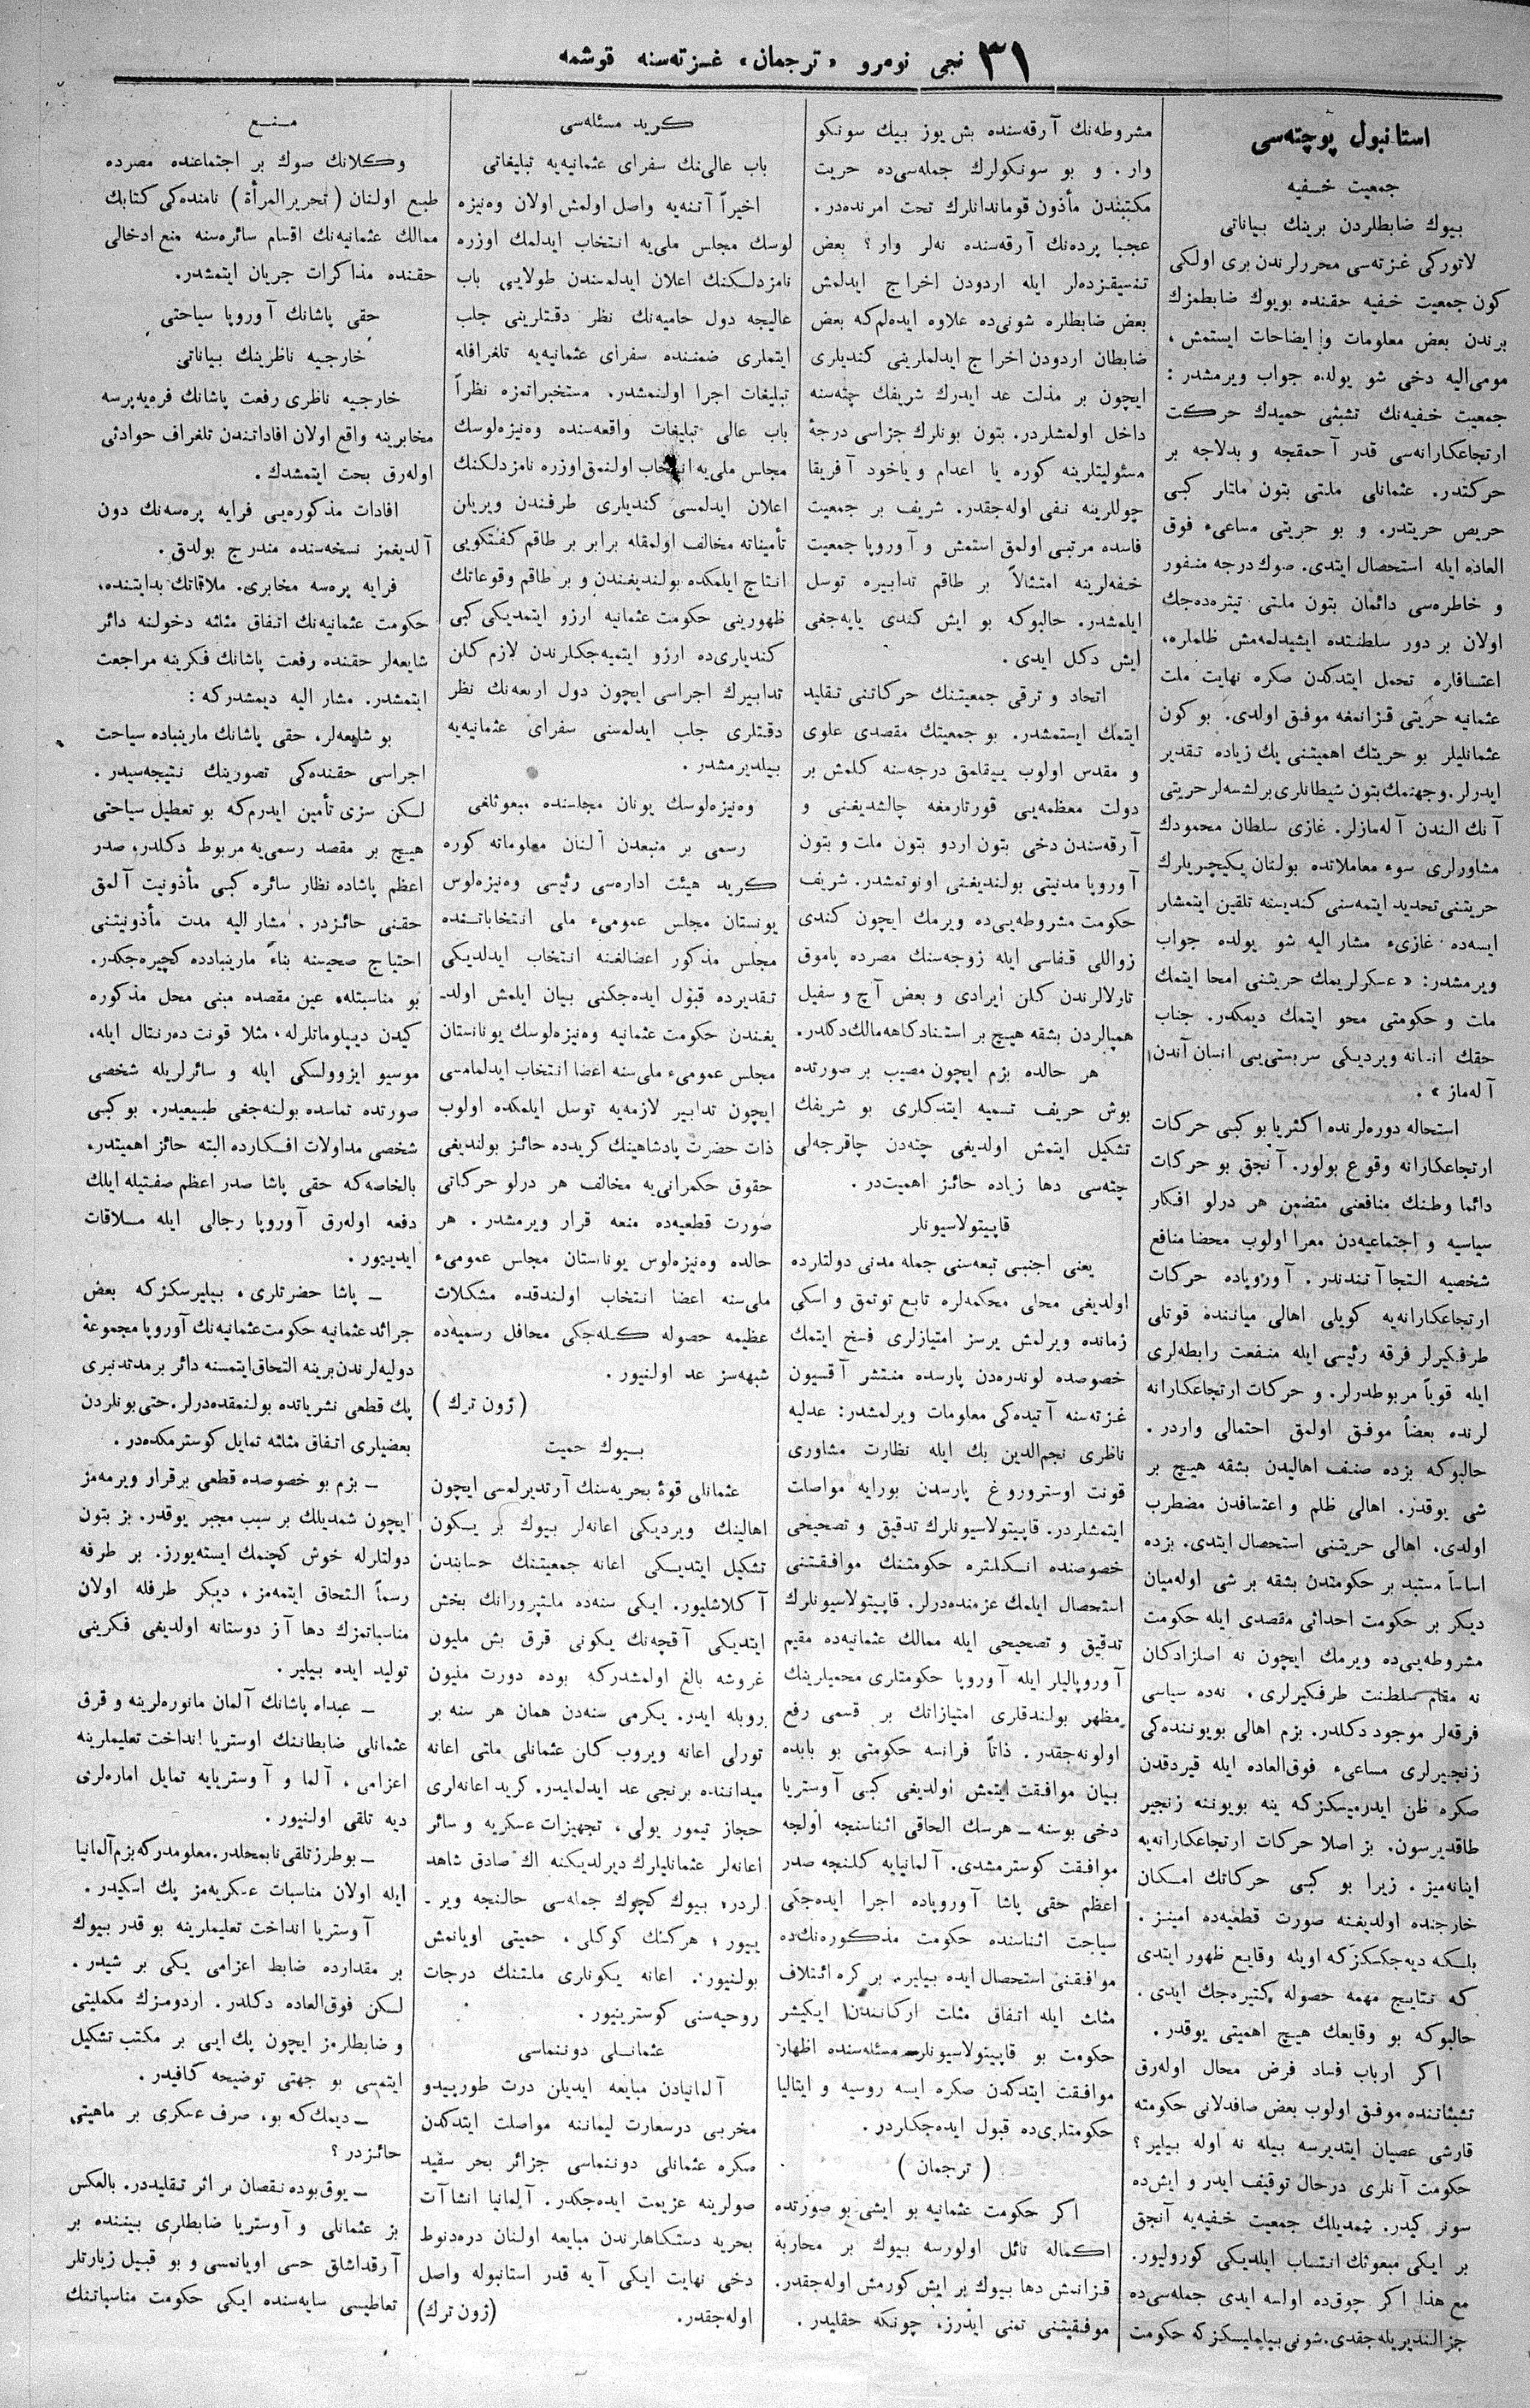 ٣١ نجی نومرو «ترجمان» غزته‌سنه قوشمه
استانبول پوچته‌سی
جمعیت خفیه
بیوك ضابطلردن برینك بیاناتی
لاتورکی غزته‌سی محررلرندن بری اولکی
کون جمعیت خفیه حقنده بویوك ضابطمزك
برندن بعض معلومات و ایضاحات ایستمش،
مومی‌الیه دخی شو یولده جواب ویرمشدر:
جمعیت خفیه‌نك تشبثی حمیدك حرکت
ارتجاعکارانه‌سی قدر آحمقجه و بدلاجه بر
حرکتدر. عثمانلی ملتی بتون ملتلر کبی
حریص حریتدر. و بو حریتی مساعیٔ فوق
العاده ایله استحصال ایتدی. صوك درجه منفور
و خاطره‌سی دائمان بتون ملتی تیتره‌ده‌جك
اولان بر دور سلطنتده ایشیدلمه‌مش ظلملره،
اعتسافلره تحمل ایتدکدن صکره نهایت ملت
عثمانیه حریتی قزانمغه موفق اولدی. بو کون
عثمانلیلر بو حریتك اهمیتنی پك زیاده تقدیر
ایدرلر. وجهنمك بتون شیطانلری برلشسه‌لر حریتی
آنك الندن آله‌مازلر. غازی سلطان محمودك
مشاورلری سوء معاملاتده بولنان یکیچریلرك
حریتنی تحدید ایتمه‌سنی کندیسنه تلقین ایتمشلر
ایسه‌ده غازیٔ مشار الیه شو یولده جواب
ویرمشدر: «عسکرلریمك حریتنی امحا ایتمك
ملت و حکومتی محو ایتمك دیمکدر. جناب
حقك انسانه ویردیکی سربستی‌یی انسان آندن
آله‌ماز».
استحاله دوره‌لرنده اکثریا بو کبی حرکات
ارتجاعکارانه وقوع بولور. آنجق بو حرکات
دائما وطنك منافعنی متضمن هر درلو افکار
سیاسیه و اجتماعیه‌دن معرا اولوب محضا منافع
شخصیه التجا آتندندر. آوروپاده حرکات
ارتجاعکارانه‌یه کویلی اهالی میاننده قوتلی
طرفکیرلر فرقه رئیسی ایله منفعت رابطه‌لری
ایله قویاً مربوطدرلر. و حرکات ارتجاعکارانه
لرنده بعضاً موفق اولمق احتمالی واردر.
حالبوکه بزده صنف اهالیدن بشقه هیچ بر
شی یوقدر. اهالی ظلم و اعتسافدن مضطرب
اولدی. اهالی حریتنی استحصال ایتدی. بزده
اساساً مستبد بر حکومتدن بشقه بر شی اوله‌میان
دیکر بر حکومت احداثی مقصدی ایله حکومت
مشروطه‌یی‌ده ویرمك ایچون نه اصلزادکان
نه مقام سلطنت طرفکیرلری، نه‌ده سیاسی
فرقه‌لر موجود دکلدر. بزم اهالی بویوننده‌کی
زنجیرلری مساعیٔ فوق‌العاده ایله قیردقدن
صکره ظن ایدرمیسکزکه ینه بویوننه زنجیر
طاقدیرسون. بز اصلا حرکات ارتجاعکارانه‌یه
اینانه‌میز. زیرا بو کبی حرکاتك امکان
خارجنده اولدیغنه صورت قطعیه‌ده امینز.
بلکه دیه‌جکسکزکه اویله وقایع ظهور ایتدی
که نتایج مهمه حصوله کتیره‌جك ایدی.
حالبوکه بو وقایعك هیچ اهمیتی یوقدر.
اکر ارباب فساد فرض محال اوله‌رق
تشبثاتنده موفق اولوب بعض صافدلانی حکومته
قارشی عصیان ایتدیرسه بیله نه اوله بیلیر؟
حکومت آنلری درحال توقیف ایدر و ایش‌ده
سونر کیدر. شمدیلك جمعیت خفیه‌یه آنجق
بر ایکی مبعوثك انتساب ایلدیکی کورولیور.
مع هذا اکر چوق‌ده اولسه ایدی جمله‌سی‌ده
جزالندیریله‌جقدی. شونی بیلملیسکزکه حکومت
مشروطه‌نك آرقه‌سنده بش یوز بیك سونکو
وار. و بو سونکولرك جمله‌سی‌ده حریت
مکتبندن مأذون قوماندانلرك تحت امرنده‌در.
عجبا پرده‌نك آرقه‌سنده نه‌لر وار؟ بعض
تنسیقزده‌لر ایله اردودن اخراج ایدلمش
بعض ضابطلره شونی‌ده علاوه ایده‌لم‌که بعض
ضابطان اردودن اخراج ایدلملرینی کندیلری
ایچون بر مذلت عد ایدرك شریفك چته‌سنه
داخل اولمشلردر. بتون بونلرك جزاسی درجهٔ
مسئولیتلرینه کوره یا اعدام و یاخود آفریقا
چوللرینه نفی اوله‌جقدر. شریف بر جمعیت
فاسده مرتبی اولمق استمش و آوروپا جمعیت
خفه‌لرینه امتثالاً بر طاقم تدابیره توسل
ایلمشدر. حالبوکه بو ایش کندی یاپه‌جغی
ایش دکل ایدی.
اتحاد و ترقی جمعیتنك حرکاتنی تقلید
ایتمك ایستمشدر. بو جمعیتك مقصدی علوی
و مقدس اولوب ییقلمق درجه‌سنه کلمش بر
دولت معظمه‌یی قورتارمغه چالشدیغنی و
آرقه‌سندن دخی بتون اردو بتون ملت و بتون
آوروپا مدنیتی بولندیغنی اونوتمشدر. شریف
حکومت مشروطه‌یی‌ده ویرمك ایچون کندی
زواللی قفاسی ایله زوجه‌سنك مصرده پاموق
تارلالرندن کلن ایرادی و بعض آچ و سفیل
همپالردن بشقه هیچ بر استنادکاهه مالك دکلدر.
هر حالده بزم ایچون مصیب بر صورتده
بوش حریف تسمیه ایتدکلری بو شریفك
تشکیل ایتمش اولدیغی چته‌دن چاقرجه‌لی
چته‌سی دها زیاده حائز اهمیت‌در.
قاپیتولاسیونلر
یعنی اجنبی تبعه‌سنی جمله مدنی دولتلرده
اولدیغی محلی محکمه‌لره تابع توتمق و اسکی
زمانده ویرلمش یرسز امتیازلری فسخ ایتمك
خصوصده لوندره‌دن پارسده منتشر آقسیون
غزته‌سنه آتیده‌کی معلومات ویرلمشدر: عدلیه
ناظری نجم‌الدین بك ایله نظارت مشاوری
قونت اوستروروغ پارسدن بورایه مواصلت
ایتمشلردر. قاپیتولاسیونلرك تدقیق و تصحیحی
خصوصنده انکلتره حکومتنك موافقتنی
استحصال ایلمك عزمنده‌درلر. قاپیتولاسیونلرك
تدقیق و تصحیحی ایله ممالك عثمانیه‌ده مقیم
آوروپالیلر ایله آوروپا حکومتلری محمیلرینك
مظهر بولندقلری امتیازاتك بر قسمی رفع
اولونه‌جقدر. ذاتاً فرانسه حکومتی بو بابده
بیان موافقت ایتمش اولدیغی کبی آوستریا
دخی بوسنه ـ هرسك الحاقی اثناسنجه اولجه
موافقت کوسترمشدی. آلمانیایه کلنجه صدر
اعظم حقی پاشا آوروپاده اجرا ایده‌جکی
سیاحت اثناسنده حکومت مذکوره‌نك‌ده
موافقتنی استحصال ایده بیلیر. بر کره ائتلاف
مثلث ایله اتفاق مثلث ارکانندن ایکیشر
حکومت بو قاپیتولاسیونلر مسئله‌سنده اظهار
موافقت ایتدکدن صکره ایسه روسیه و ایتالیا
حکومتلری‌ده قبول ایده‌جکلردر.
(ترجمان)
اکر حکومت عثمانیه بو ایشی بو صورتده
اکماله نائل اولورسه بیوك بر محاربه
قزانمش دها بیوك بر ایش کورمش اوله‌جقدر.
موفقیتنی تمنی ایدرز، چونکه حقلیدر.
کرید مسئله‌سی
باب عالی‌نك سفرای عثمانیه‌یه تبلیغاتی
اخیراً آتنه‌یه واصل اولمش اولان وه‌نیزه
لوسك مجلس ملی‌یه انتخاب ایدلمك اوزره
نامزدلکنك اعلان ایدلمسندن طولایی باب
عالیجه دول حامیه‌نك نظر دقتلرینی جلب
ایتملری ضمننده سفرای عثمانیه‌یه تلغرافله
تبلیغات اجرا اولنمشدر. مستخبراتمزه نظراً
باب عالی تبلیغات واقعه‌سنده وه‌نیزه‌لوسك
مجلس ملی‌یه انتخاب اولنمق اوزره نامزدلکنك
اعلان ایدلمسی کندیلری طرفندن ویریلن
تأمیناته مخالف اولمقله برابر بر طاقم کفتکویی
انتاج ایلمکده بولندیغندن و بر طاقم وقوعاتك
ظهورینی حکومت عثمانیه ارزو ایتمدیکی کبی
کندیلری‌ده ارزو ایتمیه‌جکلرندن لازم کلن
تدابیرك اجراسی ایچون دول اربعه‌نك نظر
دقتلری جلب ایدلمسنی سفرای عثمانیه‌یه
بیلدیرمشدر.
وه‌نیزه‌لوسك یونان مجلسنده مبعوثلغی
رسمی بر منبعدن آلنان معلوماته کوره
کرید هیئت اداره‌سی رئیسی وه‌نیزه‌لوس
یونستان مجلس عمومیٔ ملی انتخاباتنده
مجلس مذکور اعضالغنه انتخاب ایدلدیکی
تقدیرده قبول ایده‌جکنی بیان ایلمش اولد‌ـ
یغندن حکومت عثمانیه وه‌نیزه‌لوسك یونانستان
مجلس عمومیٔ ملی‌سنه اعضا انتخاب ایدلمامسی
ایچون تدابیر لازمه‌یه توسل ایلمکده اولوب
ذات حضرت پادشاهینك کریدده حائز بولندیغی
حقوق حکمرانی‌یه مخالف هر درلو حرکاتی
صورت قطعیه‌ده منعه قرار ویرمشدر. هر
حالده وه‌نیزه‌لوس یونانستان مجلس عمومیٔ
ملی‌سنه اعضا انتخاب اولندقده مشکلات
عظیمه حصوله کله‌جکی محافل رسمیه‌ده
شبهه‌سز عد اولنیور.
(ژون ترك)
بیوك حمیت
عثمانلی قوهٔ بحریه‌سنك آرتدیرلمسی ایچون
اهالینك ویردیکی اعانه‌لر بیوك بر یکون
تشکیل ایتدیکی اعانه جمعیتنك حسابندن
آکلاشلیور. ایکی سنه‌ده ملتپرورانك بخش
ایتدیکی آقچه‌نك یکونی قرق بش ملیون
غروشه بالغ اولمشدرکه بوده دورت ملیون
روبله ایدر. یکرمی سنه‌دن همان هر سنه بر
تورلی اعانه ویروب کلن عثمانلی ملتی اعانه
میداننده برنجی عد ایدلملیدر. کرید اعانه‌لری
حجاز تیمور یولی، تجهیزات عسکریه و سائر
اعانه‌لر عثمانلیلرك دیرلدیکنه اك صادق شاهد
لردر؛ بیوك کچوك جمله‌سی حالنجه ویرـ
ییور؛ هرکسك کوکلی، حمیتی اویانمش
بولنیور. اعانه یکونلری ملتنك درجات
روحیه‌سنی کوسترییور.
عثمانلی دوننماسی
آلمانیادن مبایعه ایدیلن درت طورپیدو
مخربی درسعادت لیماننه مواصلت ایتدکدن
صکره عثمانلی دوننماسی جزائر بحر سفید
صولرینه عزیمت ایده‌جکدر. آلمانیا انشاآت
بحریه دستکاهلرندن مبایعه اولنان دره‌دنوط
دخی نهایت ایکی آیه قدر استانبوله واصل
اوله‌جقدر. (ژون ترك)
منع
وکلانك صوك بر اجتماعنده مصرده
طبع اولنان (تحریر المرأة) نامنده‌کی کتابك
ممالك عثمانیه‌نك اقسام سائره‌سنه منع ادخالی
حقنده مذاکرات جریان ایتمشدر.
حقی پاشانك آوروپا سیاحتی
خارجیه ناظرینك بیاناتی
خارجیه ناظری رفعت پاشانك فره‌یه‌پرسه
مخابرینه واقع اولان افاداتندن تلغراف حوادثی
اوله‌رق بحت ایتمشدك.
افادات مذکوره‌یی فرایه پره‌سه‌نك دون
آلدیغمز نسخه‌سنده مندرج بولدق.
فرایه پره‌سه مخابری. ملاقاتك بدایتنده،
حکومت عثمانیه‌نك اتفاق مثلثه دخولنه دائر
شایعه‌لر حقنده رفعت پاشانك فکرینه مراجعت
ایتمشدر. مشار الیه دیمشدرکه:
بو شایعه‌لر، حقی پاشانك مارینباده سیاحت
اجراسی حقنده‌کی تصورینك نتیجه‌سیدر.
لکن سزی تأمین ایدرم‌که بو تعطیل سیاحتی
هیچ بر مقصد رسمی‌یه مربوط دکلدر، صدر
اعظم پاشاده نظار سائره کبی مأذونیت آلمق
حقنی حائزدر. مشار الیه مدت مأذونیتنی
احتیاج صحیسنه بناءً مارینبادده کچیره‌جکدر.
بو مناسبتله، عین مقصده مبنی محل مذکوره
کیدن دیپلوماتلرله، مثلا قونت ده‌رنتال ایله،
موسیو ایزوولسکی ایله و سائرلریله شخصی
صورتده تماسده بولنه‌جغی طبیعیدر. بو کبی
شخصی مداولات افکارده البته حائز اهمیتدر.
بالخاصه‌که حقی پاشا صدر اعظم صفتیله ایلك
دفعه اوله‌رق آوروپا رجالی ایله ملاقات
ایدییور.
ـ پاشا حضرتلری، بیلیرسکزکه بعض
جرائد عثمانیه حکومت عثمانیه‌نك آوروپا مجموعهٔ
دولیه‌لرندن برینه التحاق ایتمسنه دائر برمدتدنبری
پك قطعی نشریاتده بولنمقده‌درلر. حتی بونلردن
بعضیلری اتفاق مثلثه تمایل کوسترمکده‌در.
ـ بزم بو خصوصده قطعی برقرار ویرمه‌مز
ایچون شمدیلك بر سبب مجبر یوقدر. بز بتون
دولتلرله خوش کچنمك ایسته‌یورز. بر طرفه
رسماً التحاق ایتمه‌مز، دیکر طرفله اولان
مناسباتمزك دها آز دوستانه اولدیغی فکرینی
تولید ایده بیلیر.
ـ عبدالله پاشانك آلمان مانوره‌لرینه و قرق
عثمانلی ضابطاننك اوستریا انداخت تعلیملرینه
اعزامی، آلما و آوستریایه تمایل اماره‌لری
دیه تلقی اولنیور.
ـ بو طرز تلقی نابمحلدر. معلومدرکه بزم آلمانیا
ایله اولان مناسبات عسکریه‌مز پك اسکیدر.
آوستریا انداخت تعلیملرینه بو قدر بیوك
بر مقدارده ضابط اعزامی یکی بر شیدر.
لکن فوق‌العاده دکلدر. اردومزك مکملیتی
و ضابطلرمز ایچون پك ایی بر مکتب تشکیل
ایتمسی بو جهتی توضیحه کافیدر.
ـ دیمك‌که بو، صرف عسکری بر ماهیتی
حائزدر؟
ـ یوق بوده نقصان بر اثر تقلیددر. بالعکس
بز عثمانلی و آوستریا ضابطلری بیننده بر
آرقداشلق حسی اویانمسی و بو قبیل زیارتلر
تعاطیسی سایه‌سنده ایکی حکومت مناسباتنك